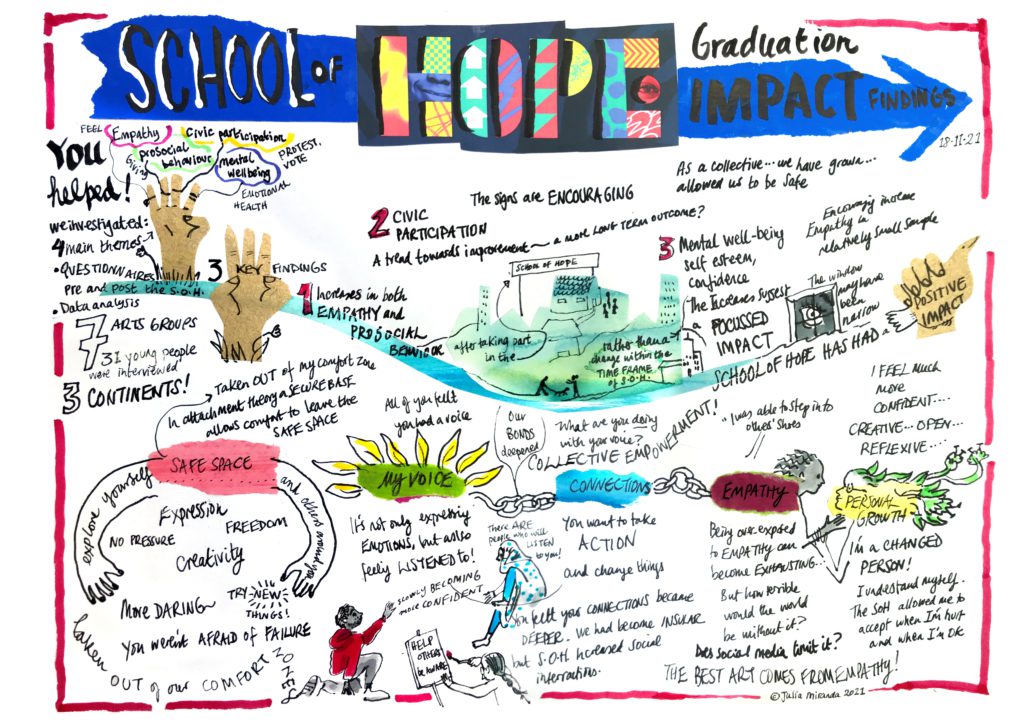 SCHOOL OF HOPE
Graduation
IMPACT FINDINGS
18-11-21
You
helped!
FEEL
Empathy
Giving
prosocial
behaviour
Civic participation
PROTEST.
VOTE
mental
wellbeing
EMOTIONAL
HEALTH
we investigated:
4 main themes
• QUESTIONNAIRES
Pre and post the S.O.H.
• Data analysis
7 ARTS GROUPS
31 young people
were interviewed
3 CONTINENTS!
3 KEY FINDINGS
1 Increases in both
EMPATHY and
PROSOCIAL
BEHAVIOUR
The signs are ENCOURAGING
2 CIVIC
PARTICIPATION
A trend towards improvement ~ a more LONG TERM OUTCOME?
SCHOOL OF HOPE
after taking part
in the...
rather than a
change within the
TIME FRAME
of S.O.H.
As a collective... we have grown...
allowed us to be safe
3 Mental well-being
self esteem,
confidence
The Increases suggest
a FOCUSSED
IMPACT
Encouraging increase
Empathy in
relatively small sample
The window
may have
been
narrow
SCHOOL OF HOPE HAS HAD a
POSITIVE
IMPACT
Taken OUT of my comfort zone
In attachment theory a SECURE BASE
allows comfort to leave the
SAFE SPACE
SAFE SPACE
explore yourself
and others around you
Expression
NO PRESSURE
FREEDOM
Creativity
TRY-NEW
THINGS!
More DARING~
You weren't AFRAID of FAILURE
Taken
OUT of our COMFORT ZONES
All of you felt
you had a voice
MY VOICE
It's not only expressing
EMOTIONS, but also
feeling LISTENED to!
SLOWLY BECOMING
more CONFIDENT
HELP
OTHERS
BE AWARE
There ARE
people who will
LISTEN
to you!
Our
BONDS
deepened
What are you doing
with your voice?
COLLECTIVE EMPOWERMENT!
CONNECTIONS
You want to take
ACTION
and change things
You felt your CONNECTIONS became
DEEPER. We had become INSULAR
but S.O.H Increased Social
interractions.
"I was able to step into
others' Shoes
EMPATHY
Being over exposed
to EMPATHY can
become EXHAUSTING...
But how terrible
would the world
be without it?
Does social media limit it?
THE BEST ART COMES FROM EMPATHY!
I FEEL MUCH
MORE
CONFIDENT....
CREATIVE... OPEN...
REFLEXIVE....
PERSONAL
GROWTH
I'm a CHANGED
PERSON!
I understand myself.
The SOH allowed me to
accept when I'm hurt
and when I'm OK
© Julia Miranda 2021